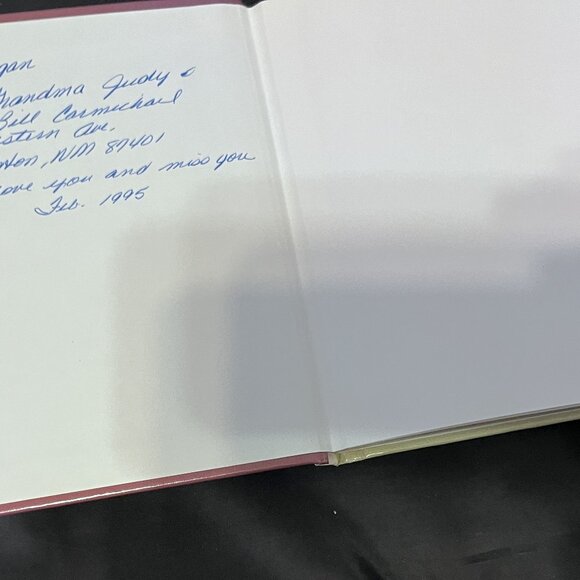 gan
randma Judy &
Bill Carmichael
stern Ave.
ton, NM 87401
ove you and miss you
Feb. 1995